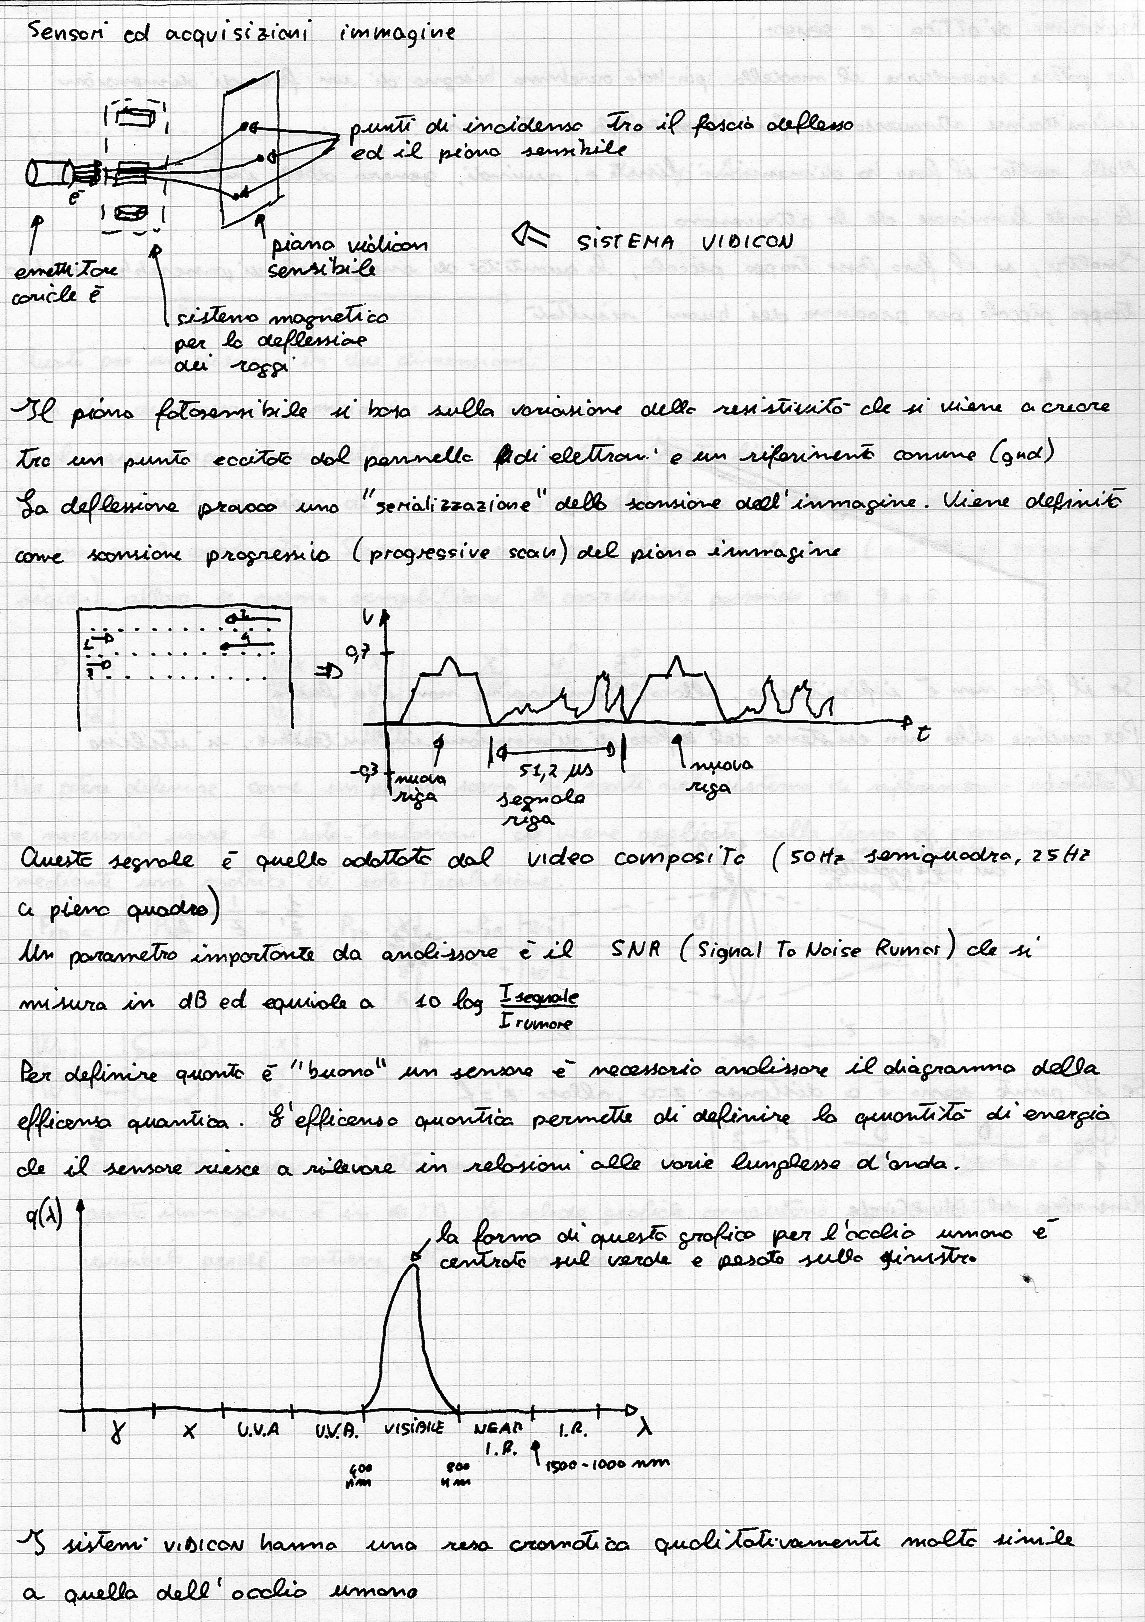 Sensori ed acquisizioni immagine
punti di incidenza tra il fascio deflesso
ed il piano sensibile
e⁻
SISTEMA VIDICON
piano vidicon
sensibile
emettitore
cariche e⁻
sistema magnetico
per la deflessione
dei raggi
Il piano fotosensibile si basa sulla variazione della resistività che si viene a creare
tra un punto eccitato dal pennello di elettroni e un riferimento comune (gnd)
La deflessione provoca una "serializzazione" della scansione dell'immagine. Viene definita
come scansione progressiva (progressive scan) del piano immagine
V
0,7
t
-0,3
nuova
riga
51,2 μs
segnale
riga
nuova
riga
Questo segnale è quello adottato dal video composito (50Hz semiquadro, 25Hz
a pieno quadro)
Un parametro importante da analizzare è il SNR (Signal To Noise Rumor) che si
misura in dB ed equivale a 10 log I segnale / I rumore
Per definire quanto è "buono" un sensore è necessario analizzare il diagramma della
efficenza quantica. L'efficenza quantica permette di definire la quantità di energia
che il sensore riesce a rilevare in relazioni alle varie lunghezze d'onda.
q(λ)
la forma di questo grafico per l'occhio umano è
centrata sul verde e pesata sulla sinistra
γ X U.V.A U.V.A. VISIBILE NEAR I.R. I.R. λ
400 nm
800 nm
1500-1000 nm
I sistemi VIDICON hanno una resa cromatica qualitativamente molto simile
a quella dell'occhio umano